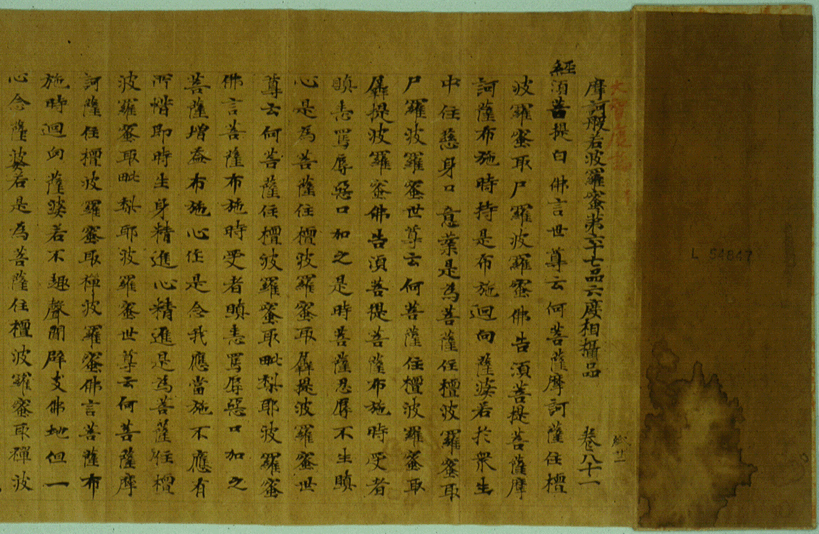 摩訶般若波羅蜜第六十七品六度相攝品 卷八十一
經須菩提白佛言世尊云何菩薩摩訶薩住檀
波羅蜜取尸羅波羅蜜佛告須菩提菩薩摩
訶薩布施時持是布施迴向薩婆若於衆生
中住慈身口意業是為菩薩住檀波羅蜜取
尸羅波羅蜜世尊云何菩薩住檀波羅蜜取
羼提波羅蜜佛告須菩提菩薩布施時受者
瞋恚罵辱惡口加之是時菩薩忍辱不生瞋
心是為菩薩住檀波羅蜜取羼提波羅蜜世
尊云何菩薩住檀波羅蜜取毗梨耶波羅蜜
佛言菩薩布施時受者瞋恚罵辱惡口加之
菩薩增益布施心住是念我應當施不應有
所惜即時生身精進心精進是為菩薩住檀
波羅蜜取毗梨耶波羅蜜世尊云何菩薩摩
訶薩住檀波羅蜜取禪波羅蜜佛言菩薩布
施時迴向薩婆若不趣聲聞辟支佛地但一
心念薩婆若是為菩薩住檀波羅蜜取禪波
L 54847